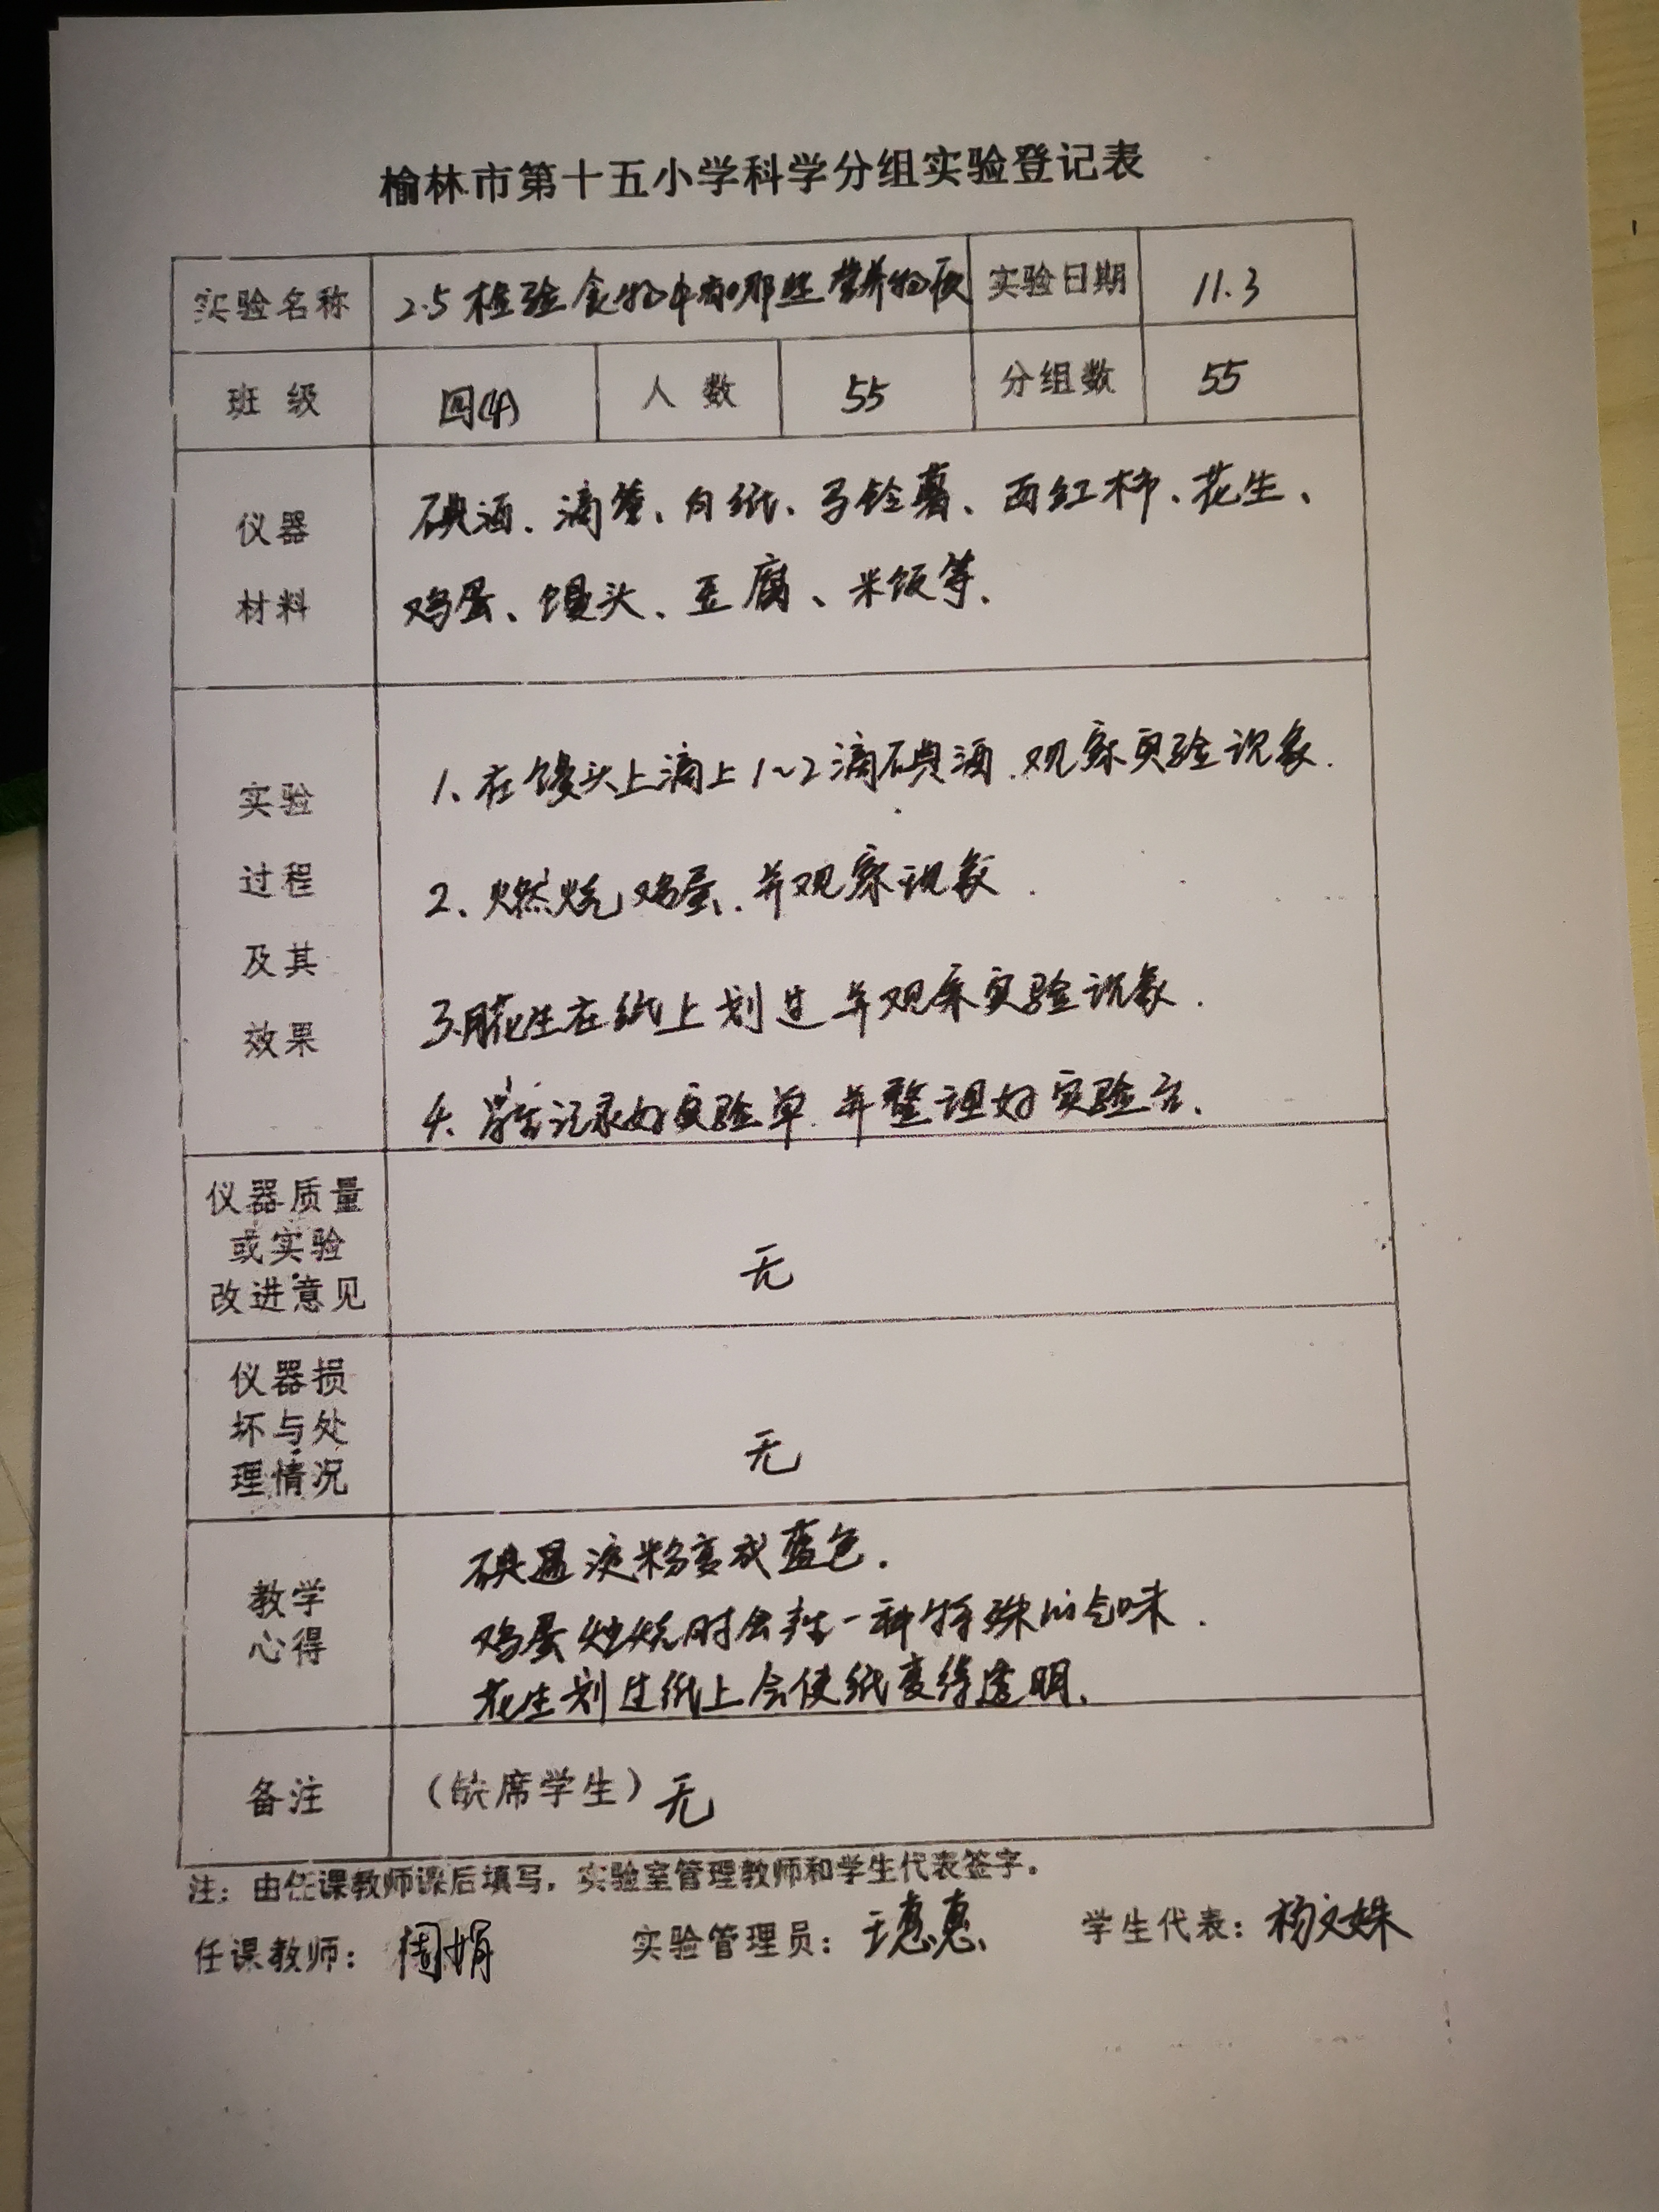 榆林市第十五小学科学分组实验登记表
实验名称 2.5检验食物中有哪些营养物质 实验日期 11.3
班 级 四(4) 人 数 55 分组数 55
仪器
材料
碘酒、滴管、白纸、马铃薯、西红柿、花生、
鸡蛋、馒头、豆腐、米饭等、
实验
过程
及其
效果
1、在馒头上滴上1~2滴碘酒.观察实验现象.
2、燃烧鸡蛋、并观察现象.
3.用花生在纸上划过并观察实验现象.
4、记录好实验单.并整理好实验台、
仪器质量
或实验
改进意见
无
仪器损
坏与处
理情况
无
教学
心得
碘遇淀粉变成蓝色.
鸡蛋燃烧时会一种特殊的气味.
花生划过纸上会使纸变得透明、
备注 (缺席学生)无
注：由任课教师课后填写，实验室管理教师和学生代表签字。
任课教师：周娟 实验管理员：王惠惠 学生代表：杨文姝